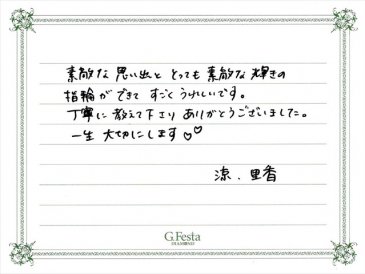 素敵な 思い出と とっても 素敵な 輝きの
指輪が できて すごく うれしいです。
丁寧に 教えて下さり ありがとうございました。
一生 大切にします♡♡
涼、里香
G.Festa
DIAMOND